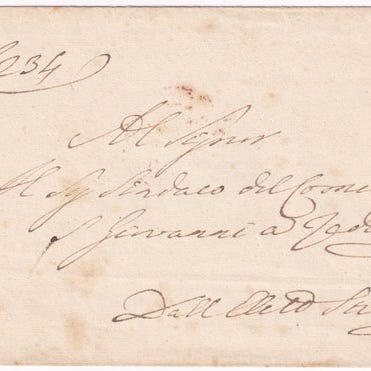 234
Al Signor
Il Sig Sindaco del Comu
S Giovanni a Tedu
Dall Eletto